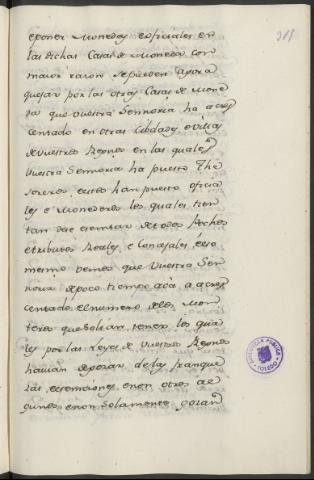 311
eponer Monedas e oficiales en
las dichas Casas de Moneda con
maior razon se pueden agora
quejar por las otras Casas de Mone
da que vuestra Sennoria ha acres
centado en otras cibdades e villas
de vuestros Regnos en las quales
vuestra Sennoria ha puesto The
soreros e estos han puesto oficia
les e Monederos los quales tien
tan de esemtar de todos Pechos
e tributos Reales, e Concejales, e eso
mesmo vemos que vuestra Sen
noria de poco tiempo acá a acres
centado el numero de los Mon
teros que solian tener los qua
les por las Leyes de vuestros Regnos
havian de gozar de las franque
zas e esemciones, e non otros al
gunos e non solamente gozan
BIBLIOTECA PUBLICA
TOLEDO